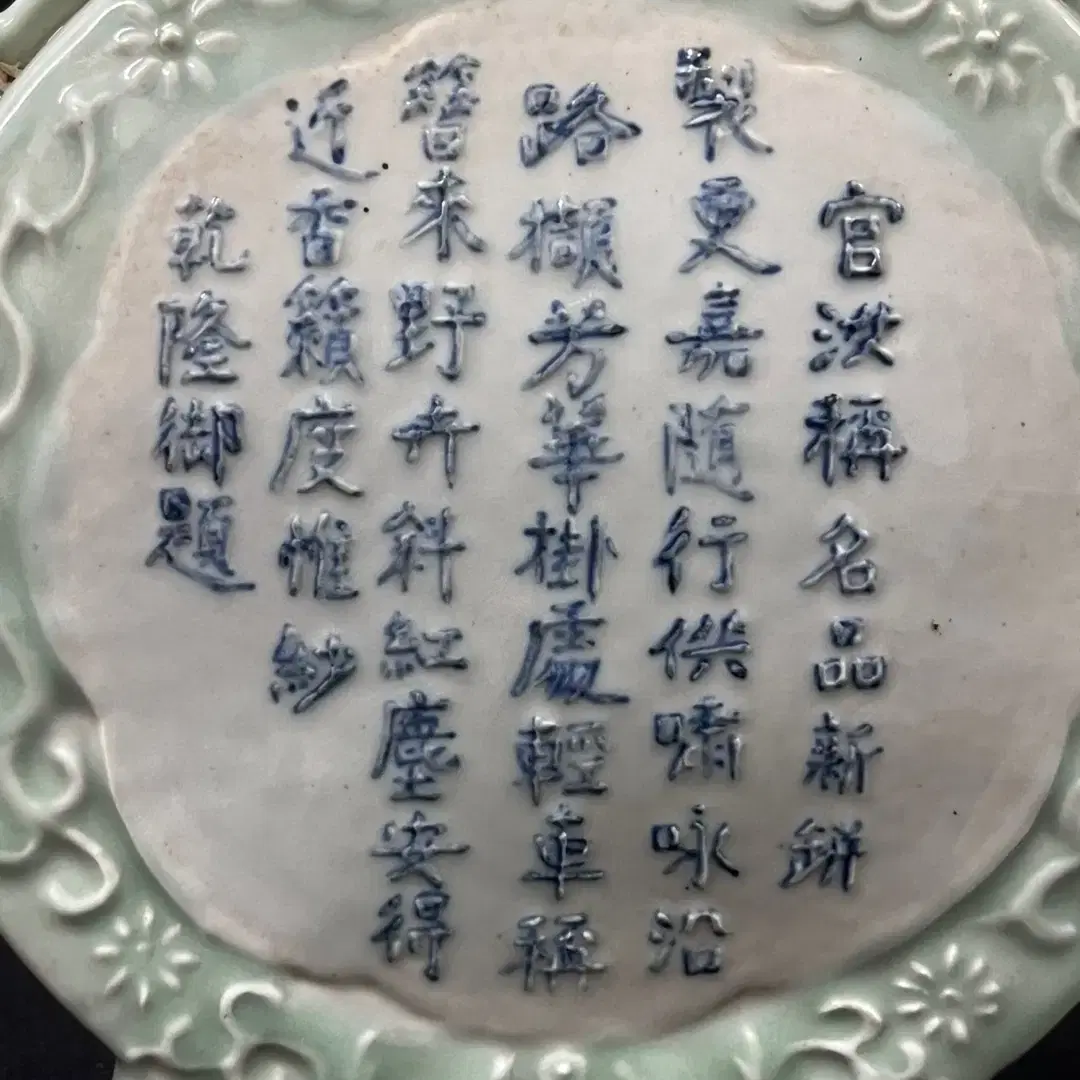 官洪稱名品新缾
製更嘉随行供嘯咏沿
路擷芳華掛處輕車稱
簪來野卉斜紅塵安得
近香籟度惟紗
乾隆御題